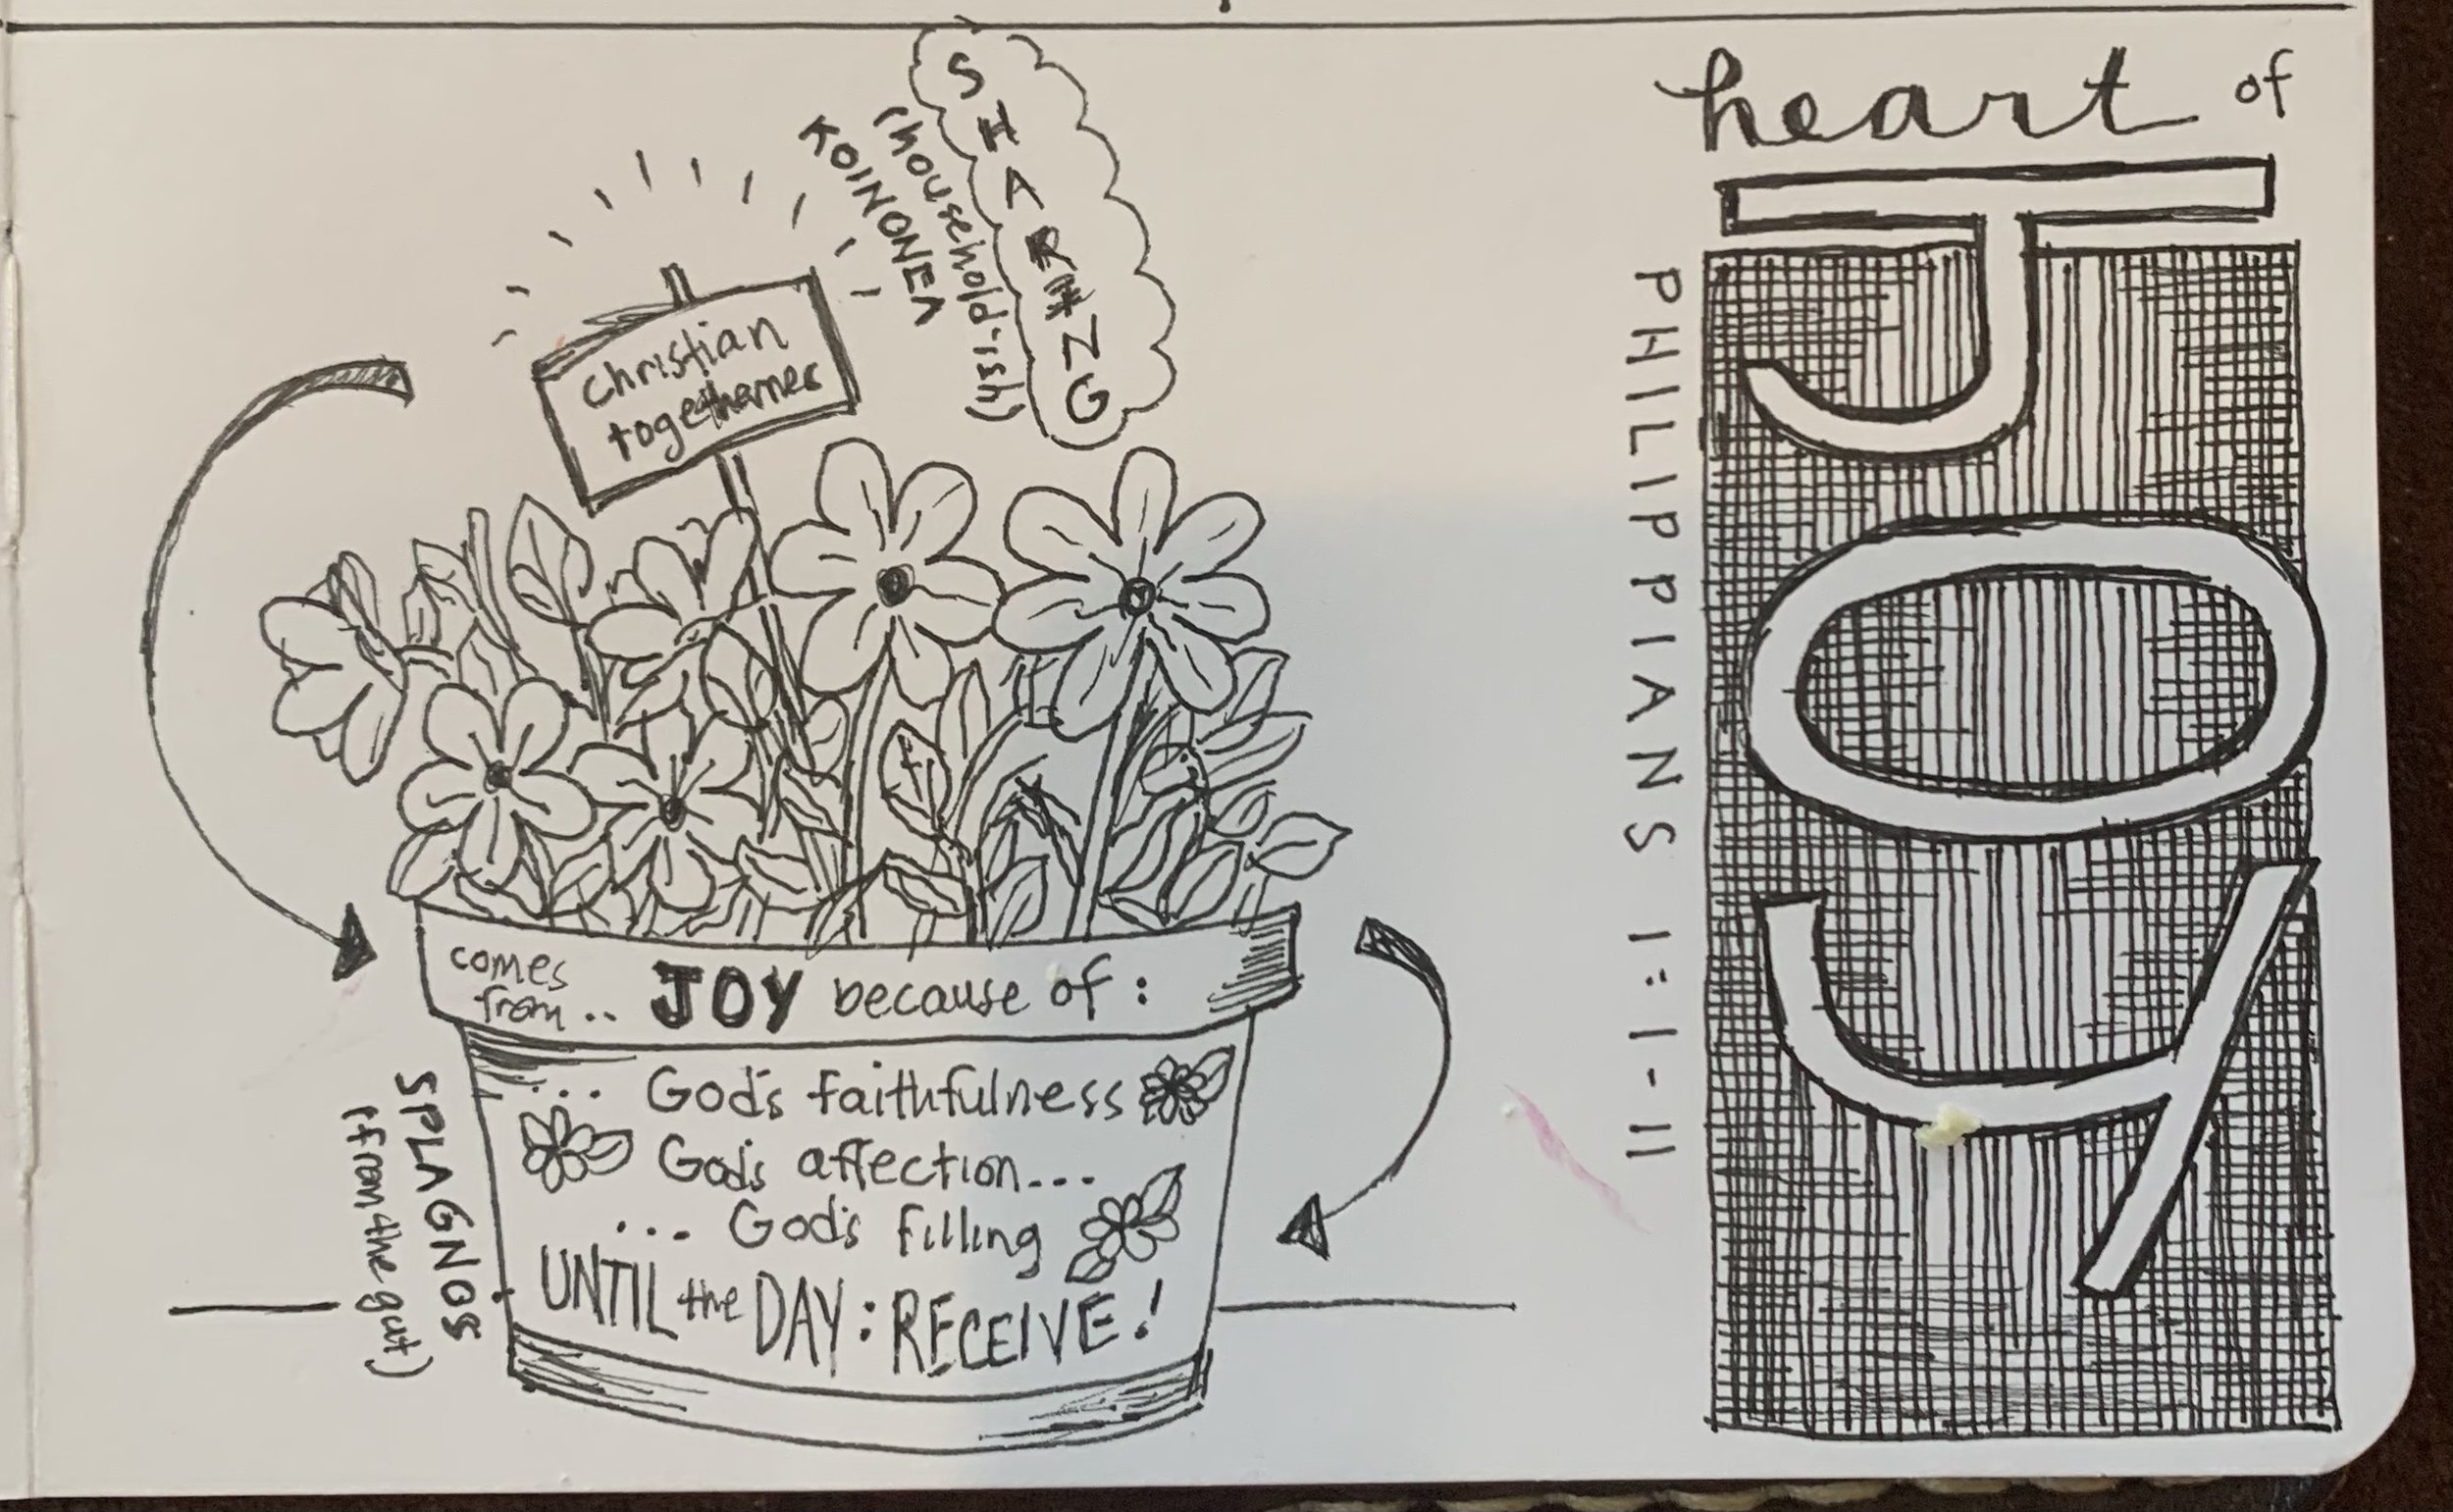 heart of
JOY
PHILIPPIANS 1:1-11
SHARING
(household-ish)
KOINONEA
Christian
togetherness
comes
from.. JOY because of:
... God's faithfulness
God's affection...
... God's filling
UNTIL the DAY: RECEIVE!
SPLAGNOS
(from the gut)